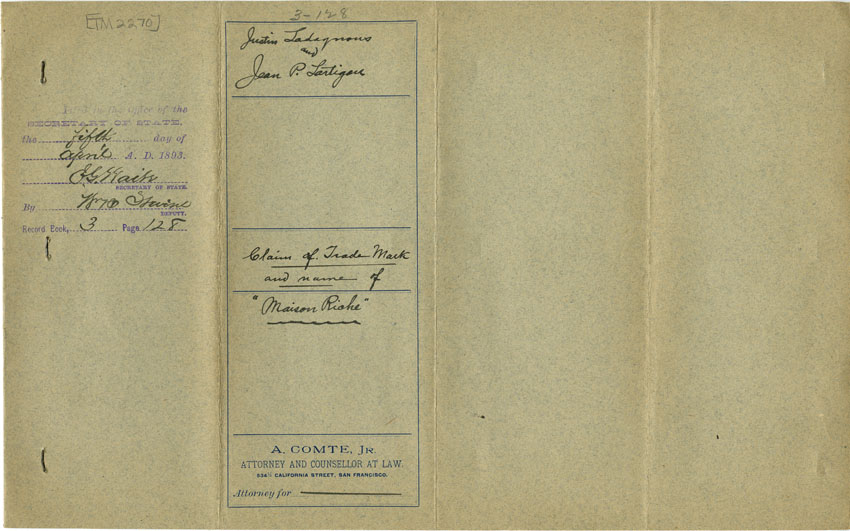 [TM 2270]
Filed in the Office of the
SECRETARY OF STATE,
the fifth day of
April A. D. 1893.
E G Waite
SECRETARY OF STATE.
By
DEPUTY.
Record Book, 3 Page 128
3-128
Justin Ladagnous
and
Jean P. Lartigau
Claim of Trade Mark
and name of
"Maison Riche"
A. COMTE, JR.
ATTORNEY AND COUNSELLOR AT LAW.
CALIFORNIA STREET, SAN FRANCISCO.
Attorney for